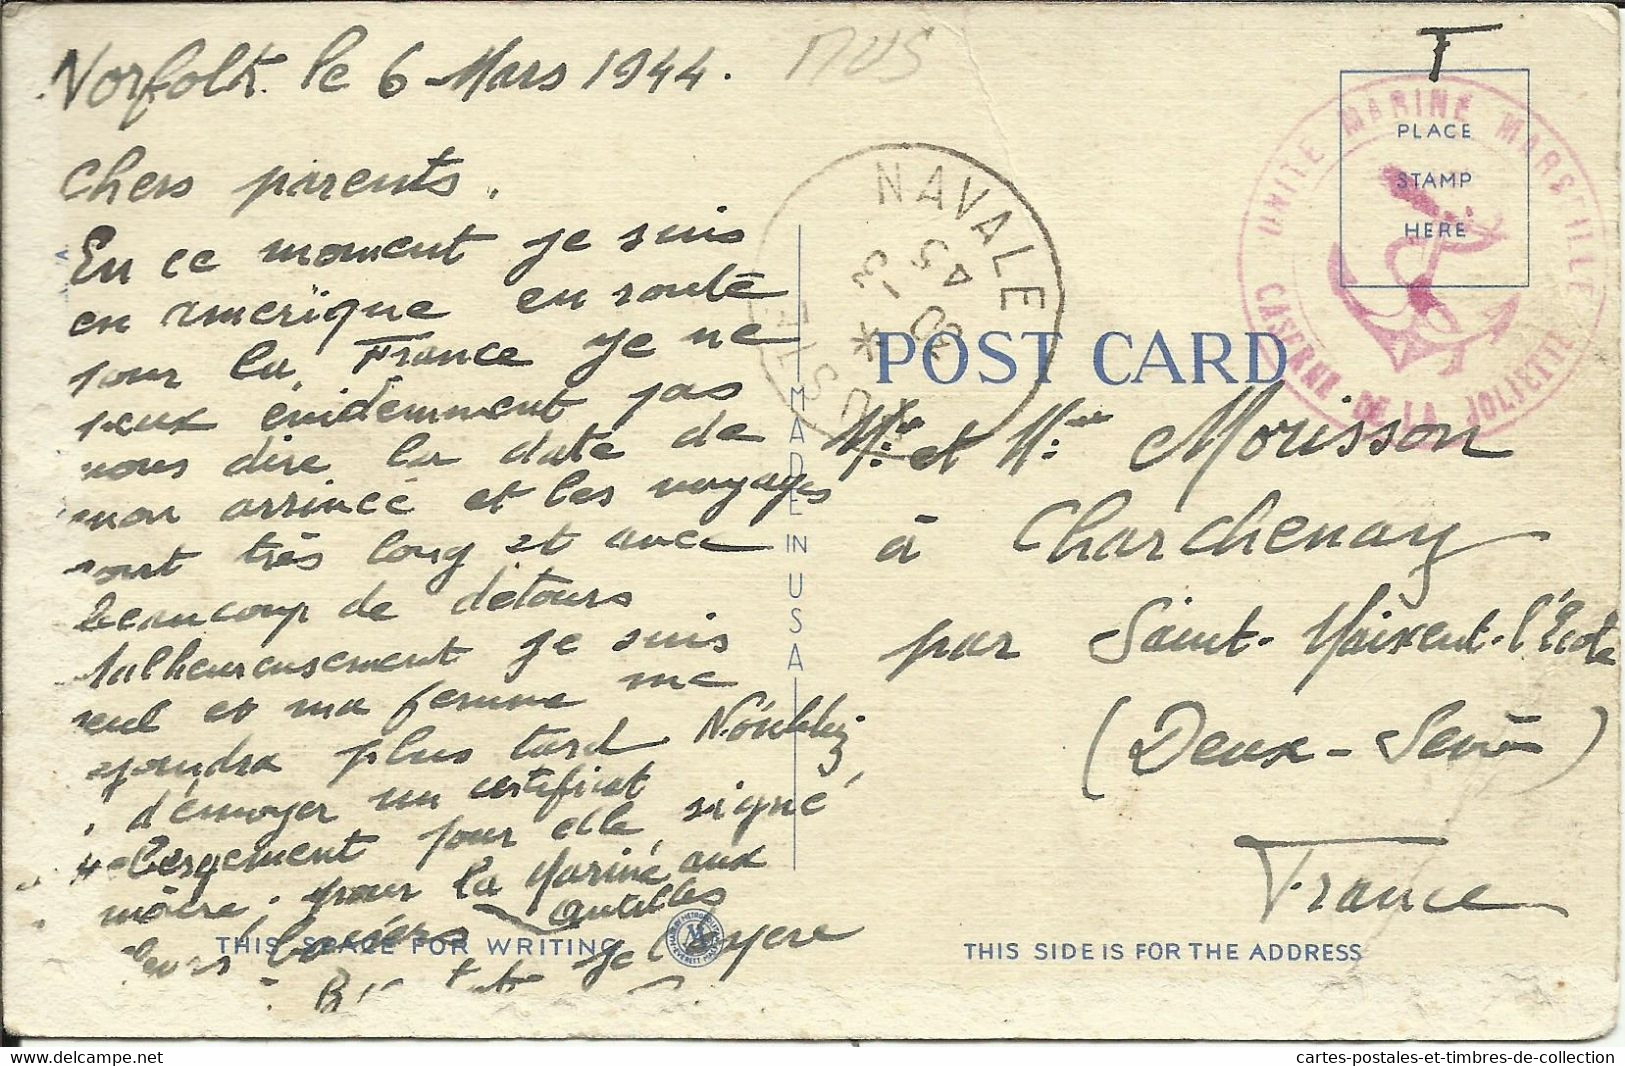 Norfolk le 6 Mars 1944.
MUS
T
Chers parents.
En ce moment je suis
en amérique en route
pour la France je ne
peux évidemment pas
vous dire la date de
mon arrivée et les voyages
sont très long et avec
beaucoup de détours
Malheureusement je suis
seul et ma femme me
rejoindra plus tard. N'oubliez
d'envoyer un certificat
Hebergement pour elle signé
maire, pour la Marine aux
Antilles
baisers je
NAVALE
45
UNITE MARINE MARSEILLE
CASERNE DE LA JOLIETTE
PLACE
STAMP
HERE
POST CARD
MADE IN USA
Mr et Mme Morisson
à Charchenay
par Saint-Maixent-l'École
(Deux-Sèvres)
France
THIS SPACE FOR WRITING
THIS SIDE IS FOR THE ADDRESS
cartes-postales-et-timbres-de-collection